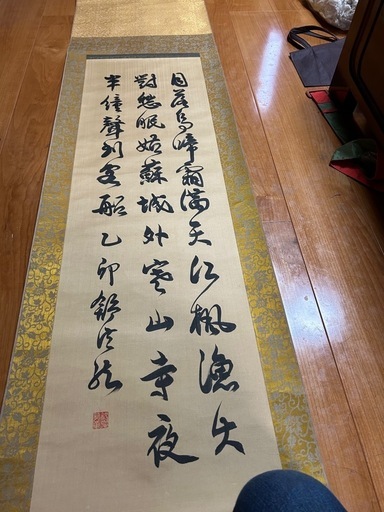 月落烏啼霜满天江楓漁火
對愁眠姑蘇城外寒山寺夜
半鐘聲到客船乙卯